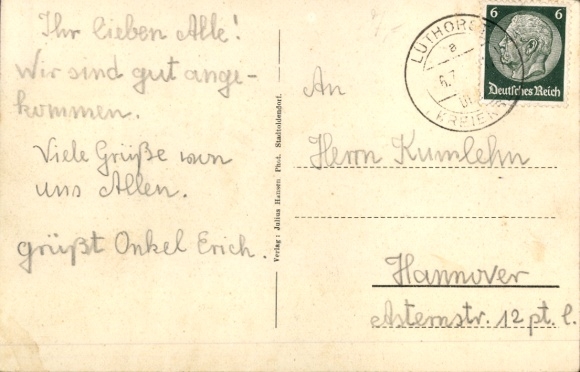 Ihr lieben Alle!
Wir sind gut ange-
kommen.
Viele Grüße von
uns Allen.
grüßt Onkel Erich.
Verlag: Julius Hansen Phot. Stadtoldendorf.
6 6
Deutsches Reich
LÜTHORST
a
6.7.
KREIE
An
Herrn Kumlehn
Hannover
Asternstr. 12 pt. l.